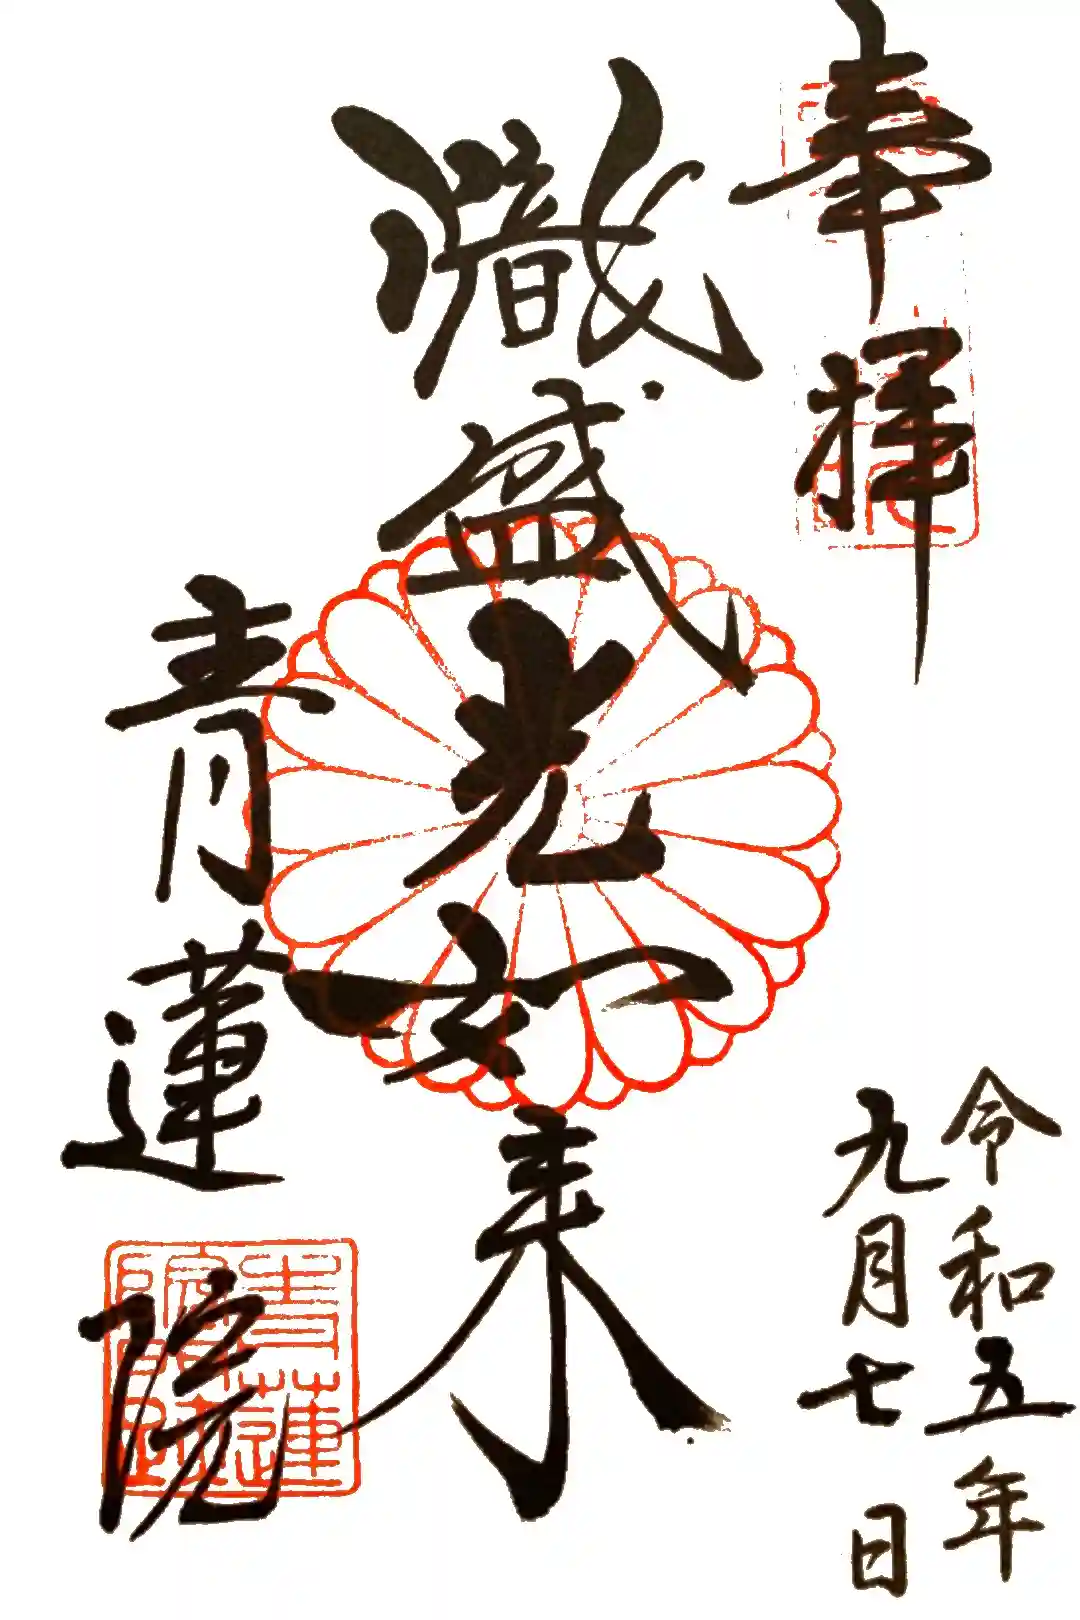 奉拝
令和五年
九月七日
熾盛光如来
青蓮院
青蓮院門跡